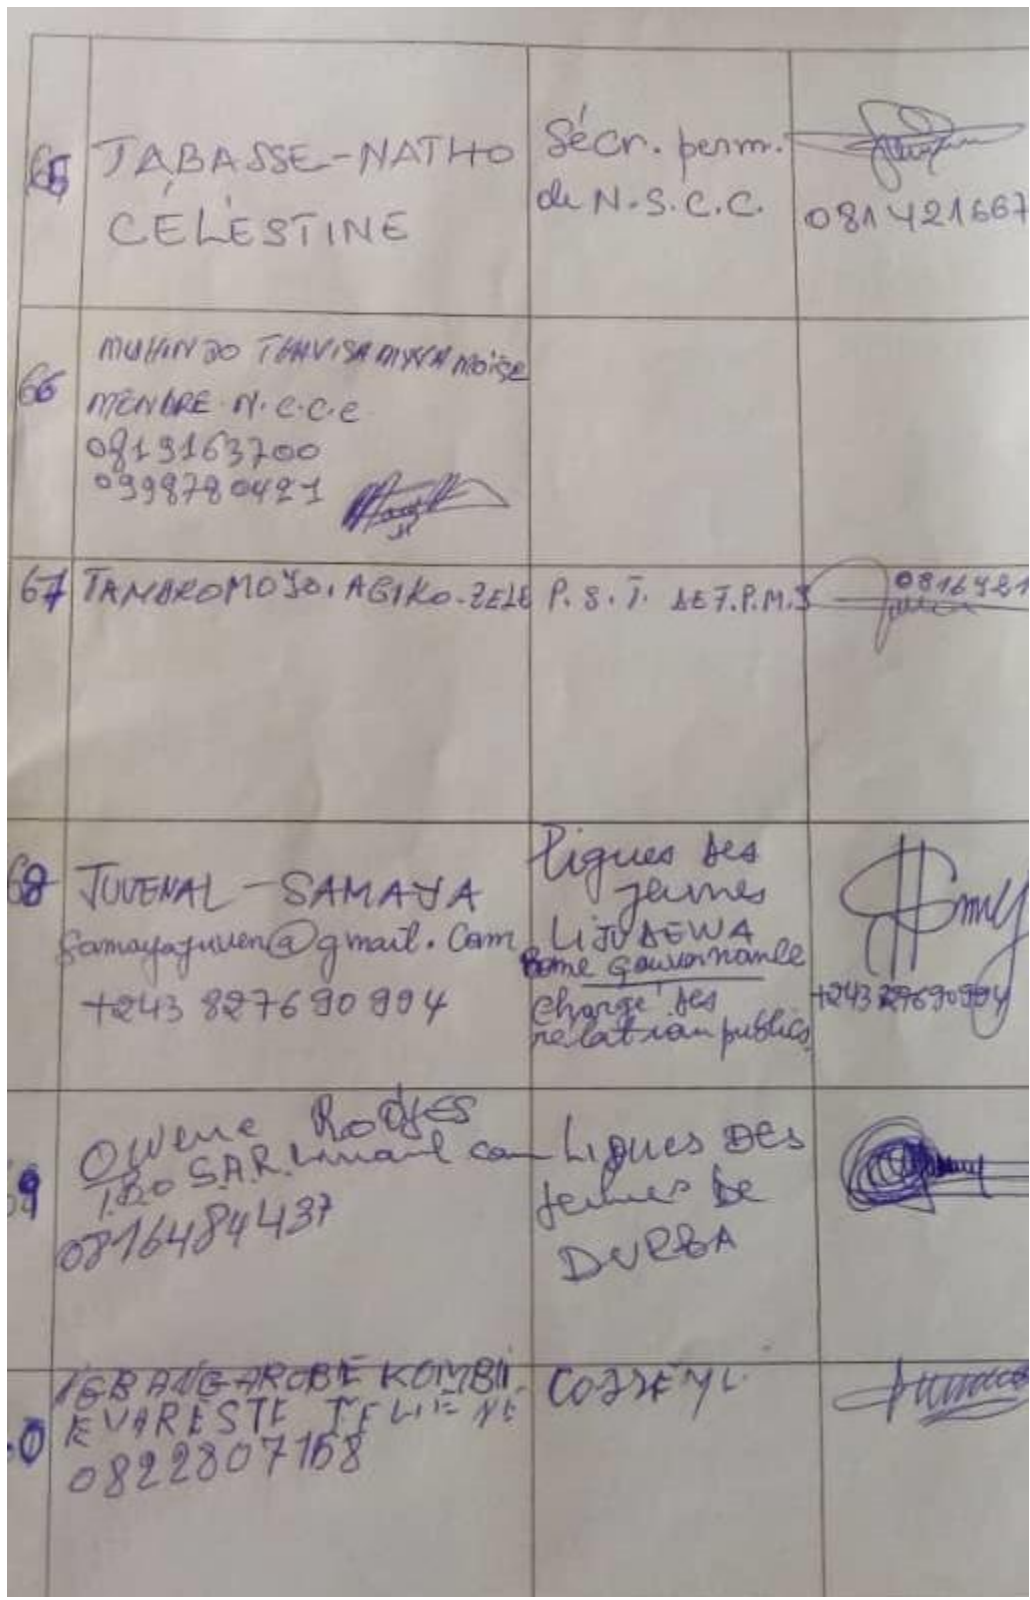 65
JABASSE-NATHO
CELESTINE
Sécr. perm.
de N.S.C.C.
081421667
66
MUHINDO
Moïse
MENBRE N.C.C.E
0819163700
0998780421
67
TAMAROMOYO. AGIKO-ZELE
P.S.T.
0816421
68
JUVENAL - SAMAYA
Samayajuven@gmail.com
+243 827690994
Ligues des
jeunes
LIJUDEWA
Bonne Gouvernance
Chargé des
relation publics
+243 827690994
69
Owene Rodjes
0816484437
Ligues Des
jeunes De
DURBA
0
KOMBI
EVARISTE
0822807158